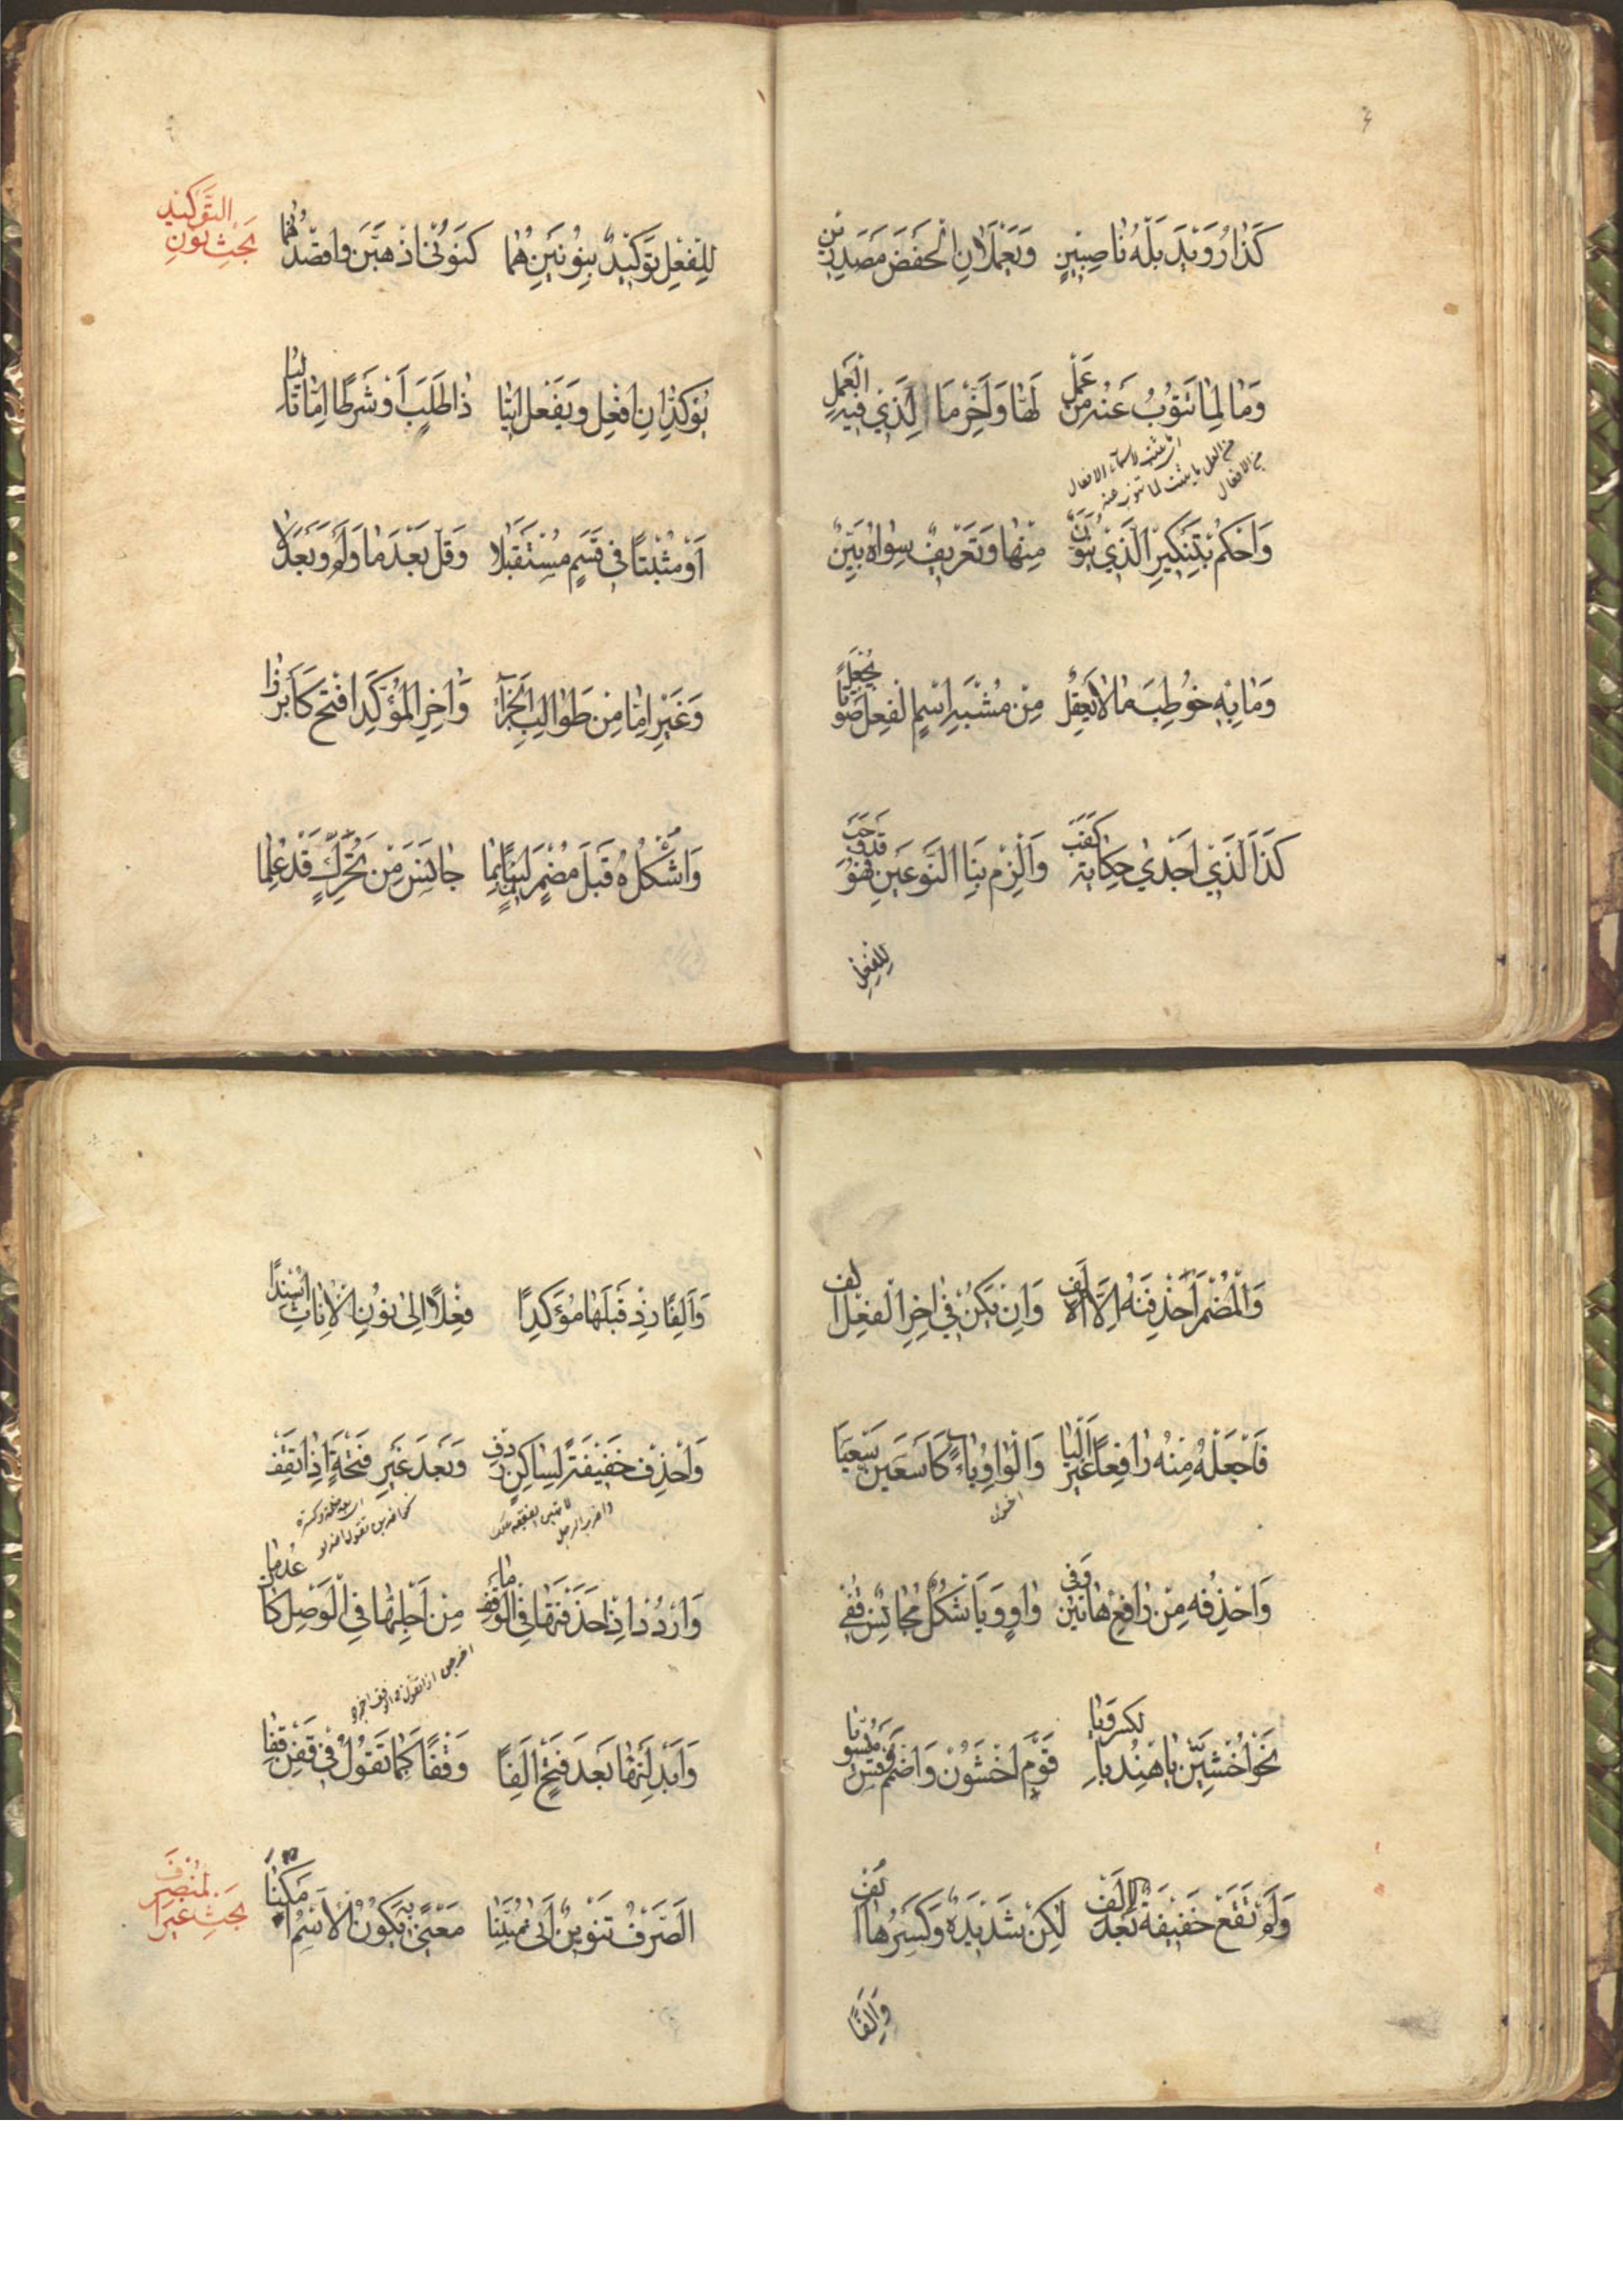 كَذَا رُوَيْدَ بَلْهَ نَاصِبَيْنِ وَيَعْمَلَانِ الْخَفْضَ مَصْدَرَيْنِ
وَمَا لِمَا تَنُوبُ عَنْهُ مِنْ عَمَلْ لَهَا وَأَخِّرْ مَا الَّذِي فِيهِ الْعَمَلْ
وَاحْكُمْ بِتَنْكِيرِ الَّذِي يُنَوَّنُ مِنْهَا وَتَعْرِيفُ سِوَاهُ بَيِّنُ
وَمَا بِهِ خُوطِبَ مَا لَا يَعْقِلُ مِنْ مُشْبِهِ اسْمِ الْفِعْلِ صَوْتًا يُجْعَلُ
كَذَا الَّذِي أَجْدَى حِكَايَةً كَقَبْ وَالْزَمْ بِنَا النَّوْعَيْنِ فَهْوَ قَدْ وَجَبْ
لِلْفِعْلِ
بَحْثُ نُونِ التَّوْكِيدِ
لِلْفِعْلِ تَوْكِيدٌ بِنُونَيْنِ هُمَا كَنُونَيْ اذْهَبَنَّ وَاقْصِدَنْهُمَا
يُؤَكِّدَانِ افْعَلْ وَيَفْعَلْ آتِيَا ذَا طَلَبٍ أَوْ شَرْطًا إِمَّا تَالِيَا
أَوْ مُثْبَتًا فِي قَسَمٍ مُسْتَقْبَلَا وَقَلَّ بَعْدَ مَا وَلَمْ وَبَعْدَ لَا
وَغَيْرِ إِمَّا مِنْ طَوَالِبِ الْجَزَا وَآخِرَ الْمُؤَكَّدِ افْتَحْ كَابْرُزَا
وَاشْكُلْهُ قَبْلَ مُضْمَرٍ لَيْنٍ بِمَا جَانَسَ مِنْ تَحَرُّكٍ قَدْ عُلِمَا
وَالْمُضْمَرَ احْذِفَنَّهُ إِلَّا الْأَلِفْ وَإِنْ يَكُنْ فِي آخِرِ الْفِعْلِ أَلِفْ
فَاجْعَلْهُ مِنْهُ رَافِعًا غَيْرَ الْيَا وَالْوَاوِ يَاءً كَاسْعَيَنَّ سَعْيَا
وَاحْذِفْهُ مِنْ رَافِعِ هَاتَيْنِ وَفِي وَاوٍ وَيَا شَكْلٌ مُجَانِسٌ قُفِي
نَحْوُ اخْشَيِنْ يَا هِنْدُ بِالْكَسْرِ وَيَا قَوْمِ اخْشَوُنْ وَاضْمُمْ وَقِسْ مُسَوِّيَا
وَلَمْ تَقَعْ خَفِيفَةٌ بَعْدَ الْأَلِفْ لَكِنْ شَدِيدَةٌ وَكَسْرُهَا أُلِفْ
وَأَلِفًا
وَأَلِفًا زِدْ قَبْلَهَا مُؤَكِّدًا فِعْلًا إِلَى نُونِ الْإِنَاثِ أُسْنِدَا
وَاحْذِفْ خَفِيفَةً لِسَاكِنٍ رَدِفْ وَبَعْدَ غَيْرِ فَتْحَةٍ إِذَا تَقِفْ
وَارْدُدْ إِذَا حَذَفْتَهَا فِي الْوَقْفِ مَا مِنْ أَجْلِهَا فِي الْوَصْلِ كَانَ عُدِمَا
وَأَبْدِلَنْهَا بَعْدَ فَتْحٍ أَلِفًا وَقْفًا كَمَا تَقُولُ فِي قِفَنْ قِفَا
بَحْثُ غَيْرِ الْمُنْصَرِفِ
الصَّرْفُ تَنْوِينٌ أَتَى مُبَيِّنًا مَعْنًى بِهِ يَكُونُ الْاسْمُ أَمْكَنَا